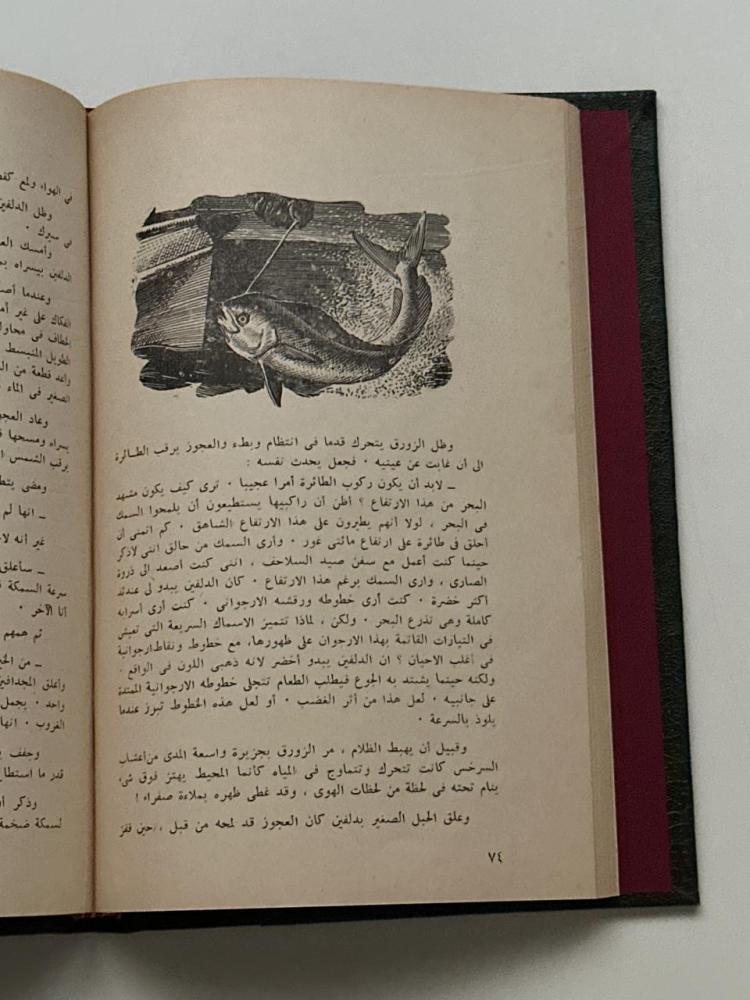 وظل الزورق يتحرك قدما فى انتظام وبطء والعجوز يرقب الطـائرة
الى أن غابت عن عينيه ٠ فجعل يحدث نفسه :
ـ لابد أن يكون ركوب الطائرة أمرا عجيبا ٠ ترى كيف يكون مشهد
البحر من هذا الارتفاع ؟ أظن أن راكبيها يستطيعون أن يلمحوا السمك
فى البحر ، لولا أنهم يطيرون على هذا الارتفاع الشاهق ٠ كم اتمنى أن
أحلق فى طائرة على ارتفاع مائتى غور ٠ وأرى السمك من حالق اننى لاذكر
حينما كنت أعمل مع سفن صيد السلاحف ، اننى كنت أصعد الى ذروة
الصارى ، وارى السمك برغم هذا الارتفاع ٠ كان الدلفين يبدو لى عندئذ
اكثر خضرة ٠ كنت أرى خطوطه ورقشه الارجوانى ٠ كنت أرى أسرابه
كاملة وهى تذرع البحر ٠ ولكن ، لماذا تتميز الاسماك السريعة التى تعيش
فى التيارات القاتمة بهذا الارجوان على ظهورها، مع خطوط ونقاط ارجوانية
فى أغلب الاحيان ؟ ان الدلفين يبدو أخضر لانه ذهبى اللون فى الواقع ٠
ولكنه حينما يشتد به الجوع فيطلب الطعام تتجلى خطوطه الارجوانية الممتدة
على جانبيه ٠ لعل هذا من أثر الغضب ٠ أو لعل هذه الخطوط تبرز عندما
يلوذ بالسرعة ٠
وقبيل أن يهبط الظلام ، مر الزورق بجزيرة واسعة المدى من أعشاب
السرخس كانت تتحرك وتتماوج فى المياه كأنما المحيط يهتز فوق شىء
ينام تحته فى لحظة من لحظات الهوى ، وقد غطى ظهره بملاءة صفراء !
وعلق الحبل الصغير بدلفين كان العجوز قد لمحه من قبل ، حين قفز
٧٤
فى الهواء ولمع
وظل الدلفين
فى سيرك ٠
وأمسك
الدلفين بيسراه
وعندما
الفكاك على غير
الخطاف فى
الطويل المنبسط
قطعة من
الصغير فى الماء
وعاد
بسراه ومسحها
يرقب الشمس
ومضى
ـ انها لم
غير أنه
ـ سأعلق
سرعة السمكة
أنا الآخر ٠
ثم همهم
ـ من
وأعلق المجدافين
واحد ٠ يجمل
الغروب ٠ انها
وجفف
قدر ما استطاع
وذكر
لسمكة ضخمة